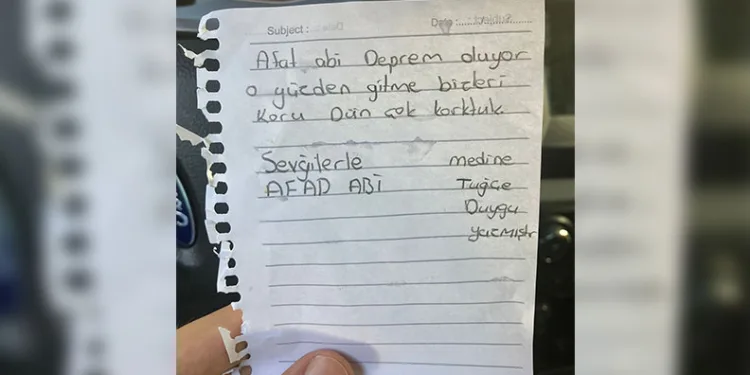 Subject :
Date :
Afat abi Deprem oluyor
o yüzden gitme bizleri
Koru Dün çok korktuk.
Sevğilerle medine
AFAD ABİ Tuğçe
Duygu
yazmıştır